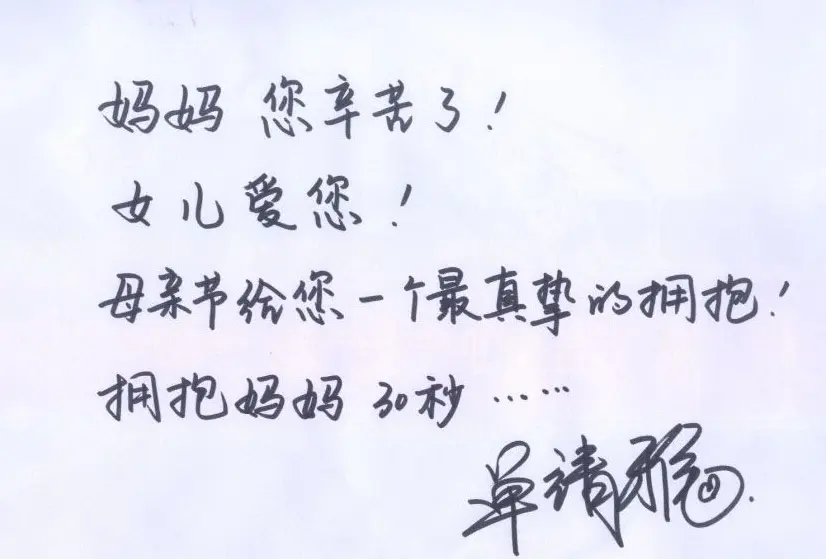 妈妈 您辛苦了!
女儿爱您!
母亲节给您一个最真挚的拥抱!
拥抱妈妈 30秒 ……